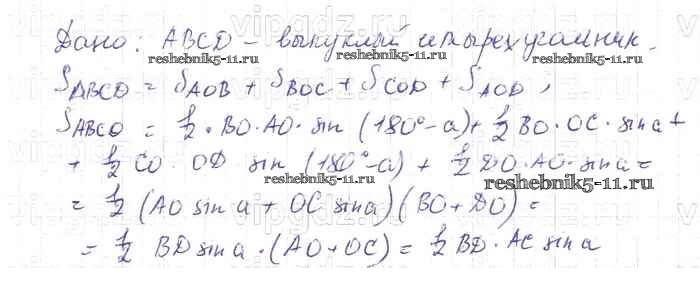 Дано: ABCD – выпуклый четырехугольник.
reshebnik5-11.ru reshebnik5-11.ru
S_ABCD = S_AOB + S_BOC + S_COD + S_AOD,
S_ABCD = 1/2 · BO · AO · sin (180° – a) + 1/2 BO · OC · sin a +
+ 1/2 CO · OD sin (180° – a) + 1/2 DO · AO · sin a =
reshebnik5-11.ru reshebnik5-11.ru
= 1/2 (AO sin a + OC sin a) (BO + DO) =
= 1/2 BD sin a · (AO + OC) = 1/2 BD · AC sin a